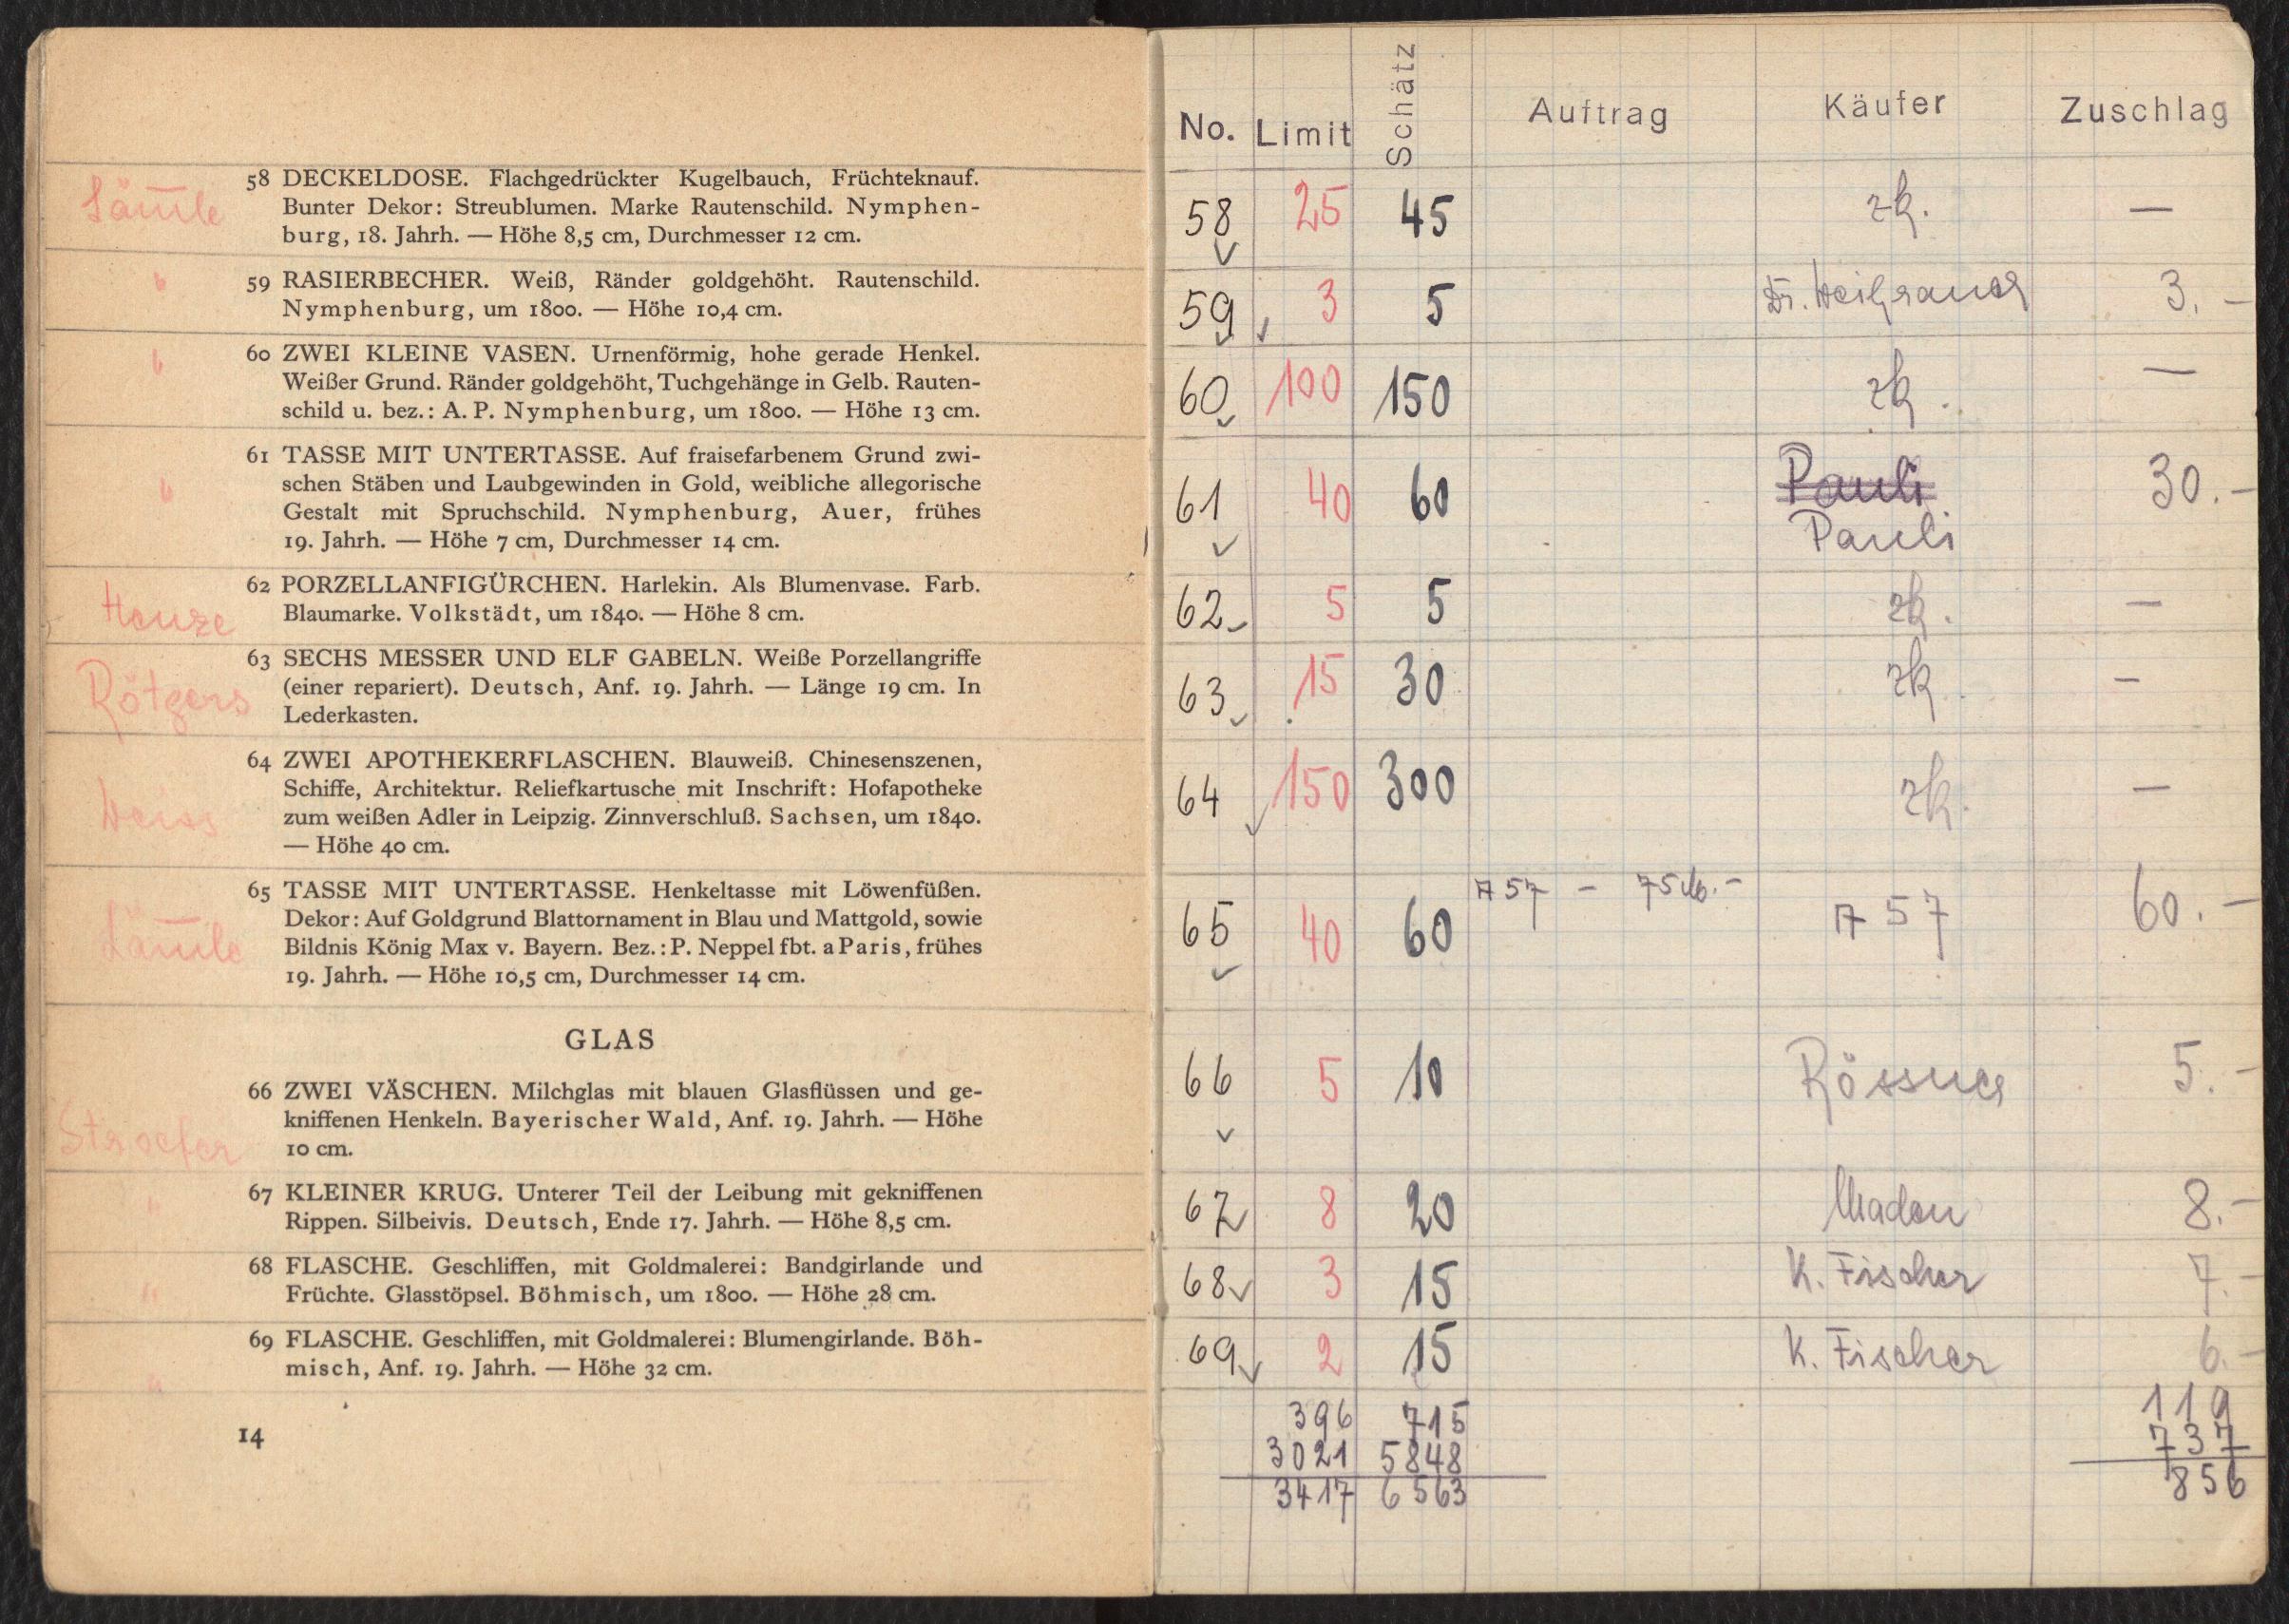 58 DECKELDOSE. Flachgedrückter Kugelbauch, Früchteknauf.
Bunter Dekor: Streublumen. Marke Rautenschild. Nymphen-
burg, 18. Jahrh. — Höhe 8,5 cm, Durchmesser 12 cm.
59 RASIERBECHER. Weiß, Ränder goldgehöht. Rautenschild.
Nymphenburg, um 1800. — Höhe 10,4 cm.
60 ZWEI KLEINE VASEN. Urnenförmig, hohe gerade Henkel.
Weißer Grund. Ränder goldgehöht, Tuchgehänge in Gelb. Rauten-
schild u. bez.: A. P. Nymphenburg, um 1800. — Höhe 13 cm.
61 TASSE MIT UNTERTASSE. Auf fraisefarbenem Grund zwi-
schen Stäben und Laubgewinden in Gold, weibliche allegorische
Gestalt mit Spruchschild. Nymphenburg, Auer, frühes
19. Jahrh. — Höhe 7 cm, Durchmesser 14 cm.
Henze
62 PORZELLANFIGÜRCHEN. Harlekin. Als Blumenvase. Farb.
Blaumarke. Volkstädt, um 1840. — Höhe 8 cm.
Rötgers
63 SECHS MESSER UND ELF GABELN. Weiße Porzellangriffe
(einer repariert). Deutsch, Anf. 19. Jahrh. — Länge 19 cm. In
Lederkasten.
Weiss
64 ZWEI APOTHEKERFLASCHEN. Blauweiß. Chinesenszenen,
Schiffe, Architektur. Reliefkartusche mit Inschrift: Hofapotheke
zum weißen Adler in Leipzig. Zinnverschluß. Sachsen, um 1840.
— Höhe 40 cm.
65 TASSE MIT UNTERTASSE. Henkeltasse mit Löwenfüßen.
Dekor: Auf Goldgrund Blattornament in Blau und Mattgold, sowie
Bildnis König Max v. Bayern. Bez.: P. Neppel fbt. a Paris, frühes
19. Jahrh. — Höhe 10,5 cm, Durchmesser 14 cm.
GLAS
Stroefer
66 ZWEI VÄSCHEN. Milchglas mit blauen Glasflüssen und ge-
kniffenen Henkeln. Bayerischer Wald, Anf. 19. Jahrh. — Höhe
10 cm.
67 KLEINER KRUG. Unterer Teil der Leibung mit gekniffenen
Rippen. Silbeivis. Deutsch, Ende 17. Jahrh. — Höhe 8,5 cm.
68 FLASCHE. Geschliffen, mit Goldmalerei: Bandgirlande und
Früchte. Glasstöpsel. Böhmisch, um 1800. — Höhe 28 cm.
69 FLASCHE. Geschliffen, mit Goldmalerei: Blumengirlande. Böh-
misch, Anf. 19. Jahrh. — Höhe 32 cm.
14
No. Limit Schätz Auftrag Käufer Zuschlag
58 25 45 zk. —
59 3 5 Dr. 3.-
60 100 150 zk. —
61 40 60 Pauli 30.-
Pauli
62 5 5 zk. —
63 15 30 zk —
64 150 300 zk. —
65 40 60 A 57 - 75 A 57 60.-
66 5 10 Rössner 5.-
67 8 20 Madon 8.-
68 3 15 K. Fischer 7.-
69 2 15 K. Fischer 6.-
396 715 119
3021 5848 737
3417 6563 856